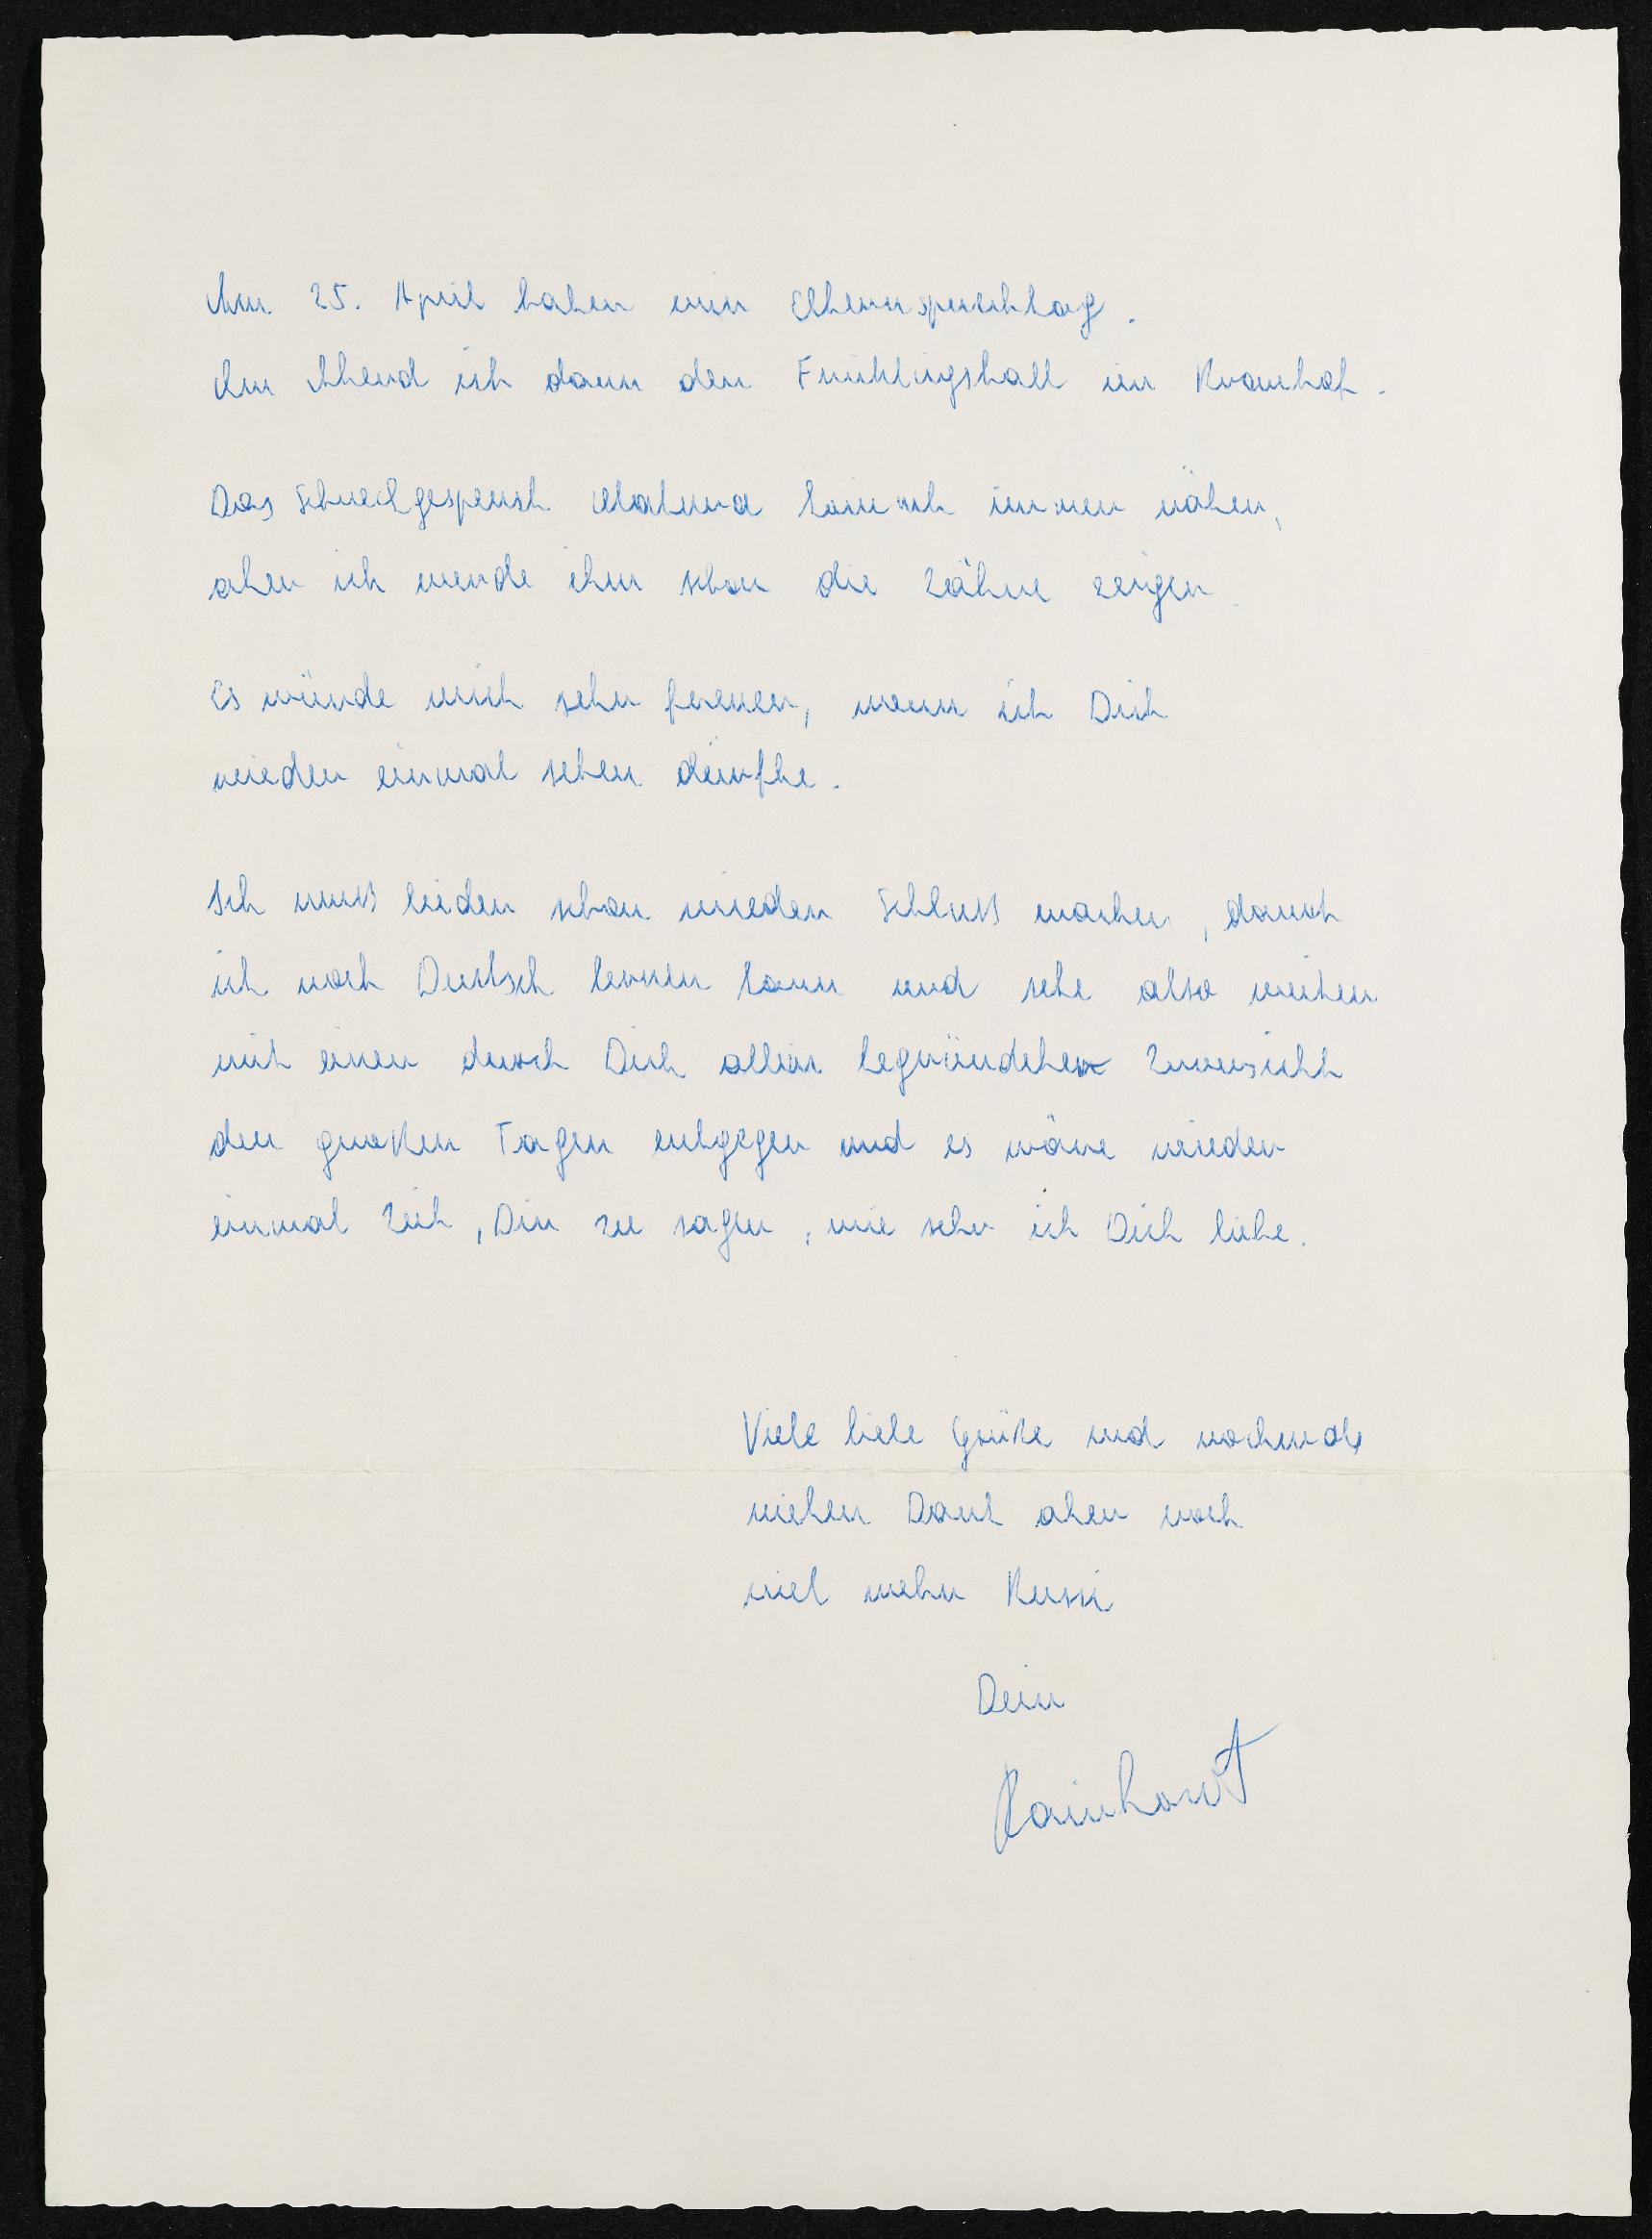 Am 25. April haben wir Elternsprechtag.
Am Abend ist dann der Frühlingsball im Kramhof.
Das Schreckgespenst Matura kommt immer näher,
aber ich werde ihm schon die Zähne zeigen.
Es würde mich sehr freuen, wenn ich Dich
wieder einmal sehen dürfte.
Ich muß leider schon wieder Schluß machen, damit
ich noch Deutsch lernen kann und sehe also weiter
mit einer durch Dich allein begründeten Zuversicht
den großen Tagen entgegen und es wäre wieder
einmal Zeit, Dir zu sagen, wie sehr ich Dich liebe.
Viele liebe Grüße und nochmals
vielen Dank aber noch
viel mehr Bussi
Dein
Rainhart